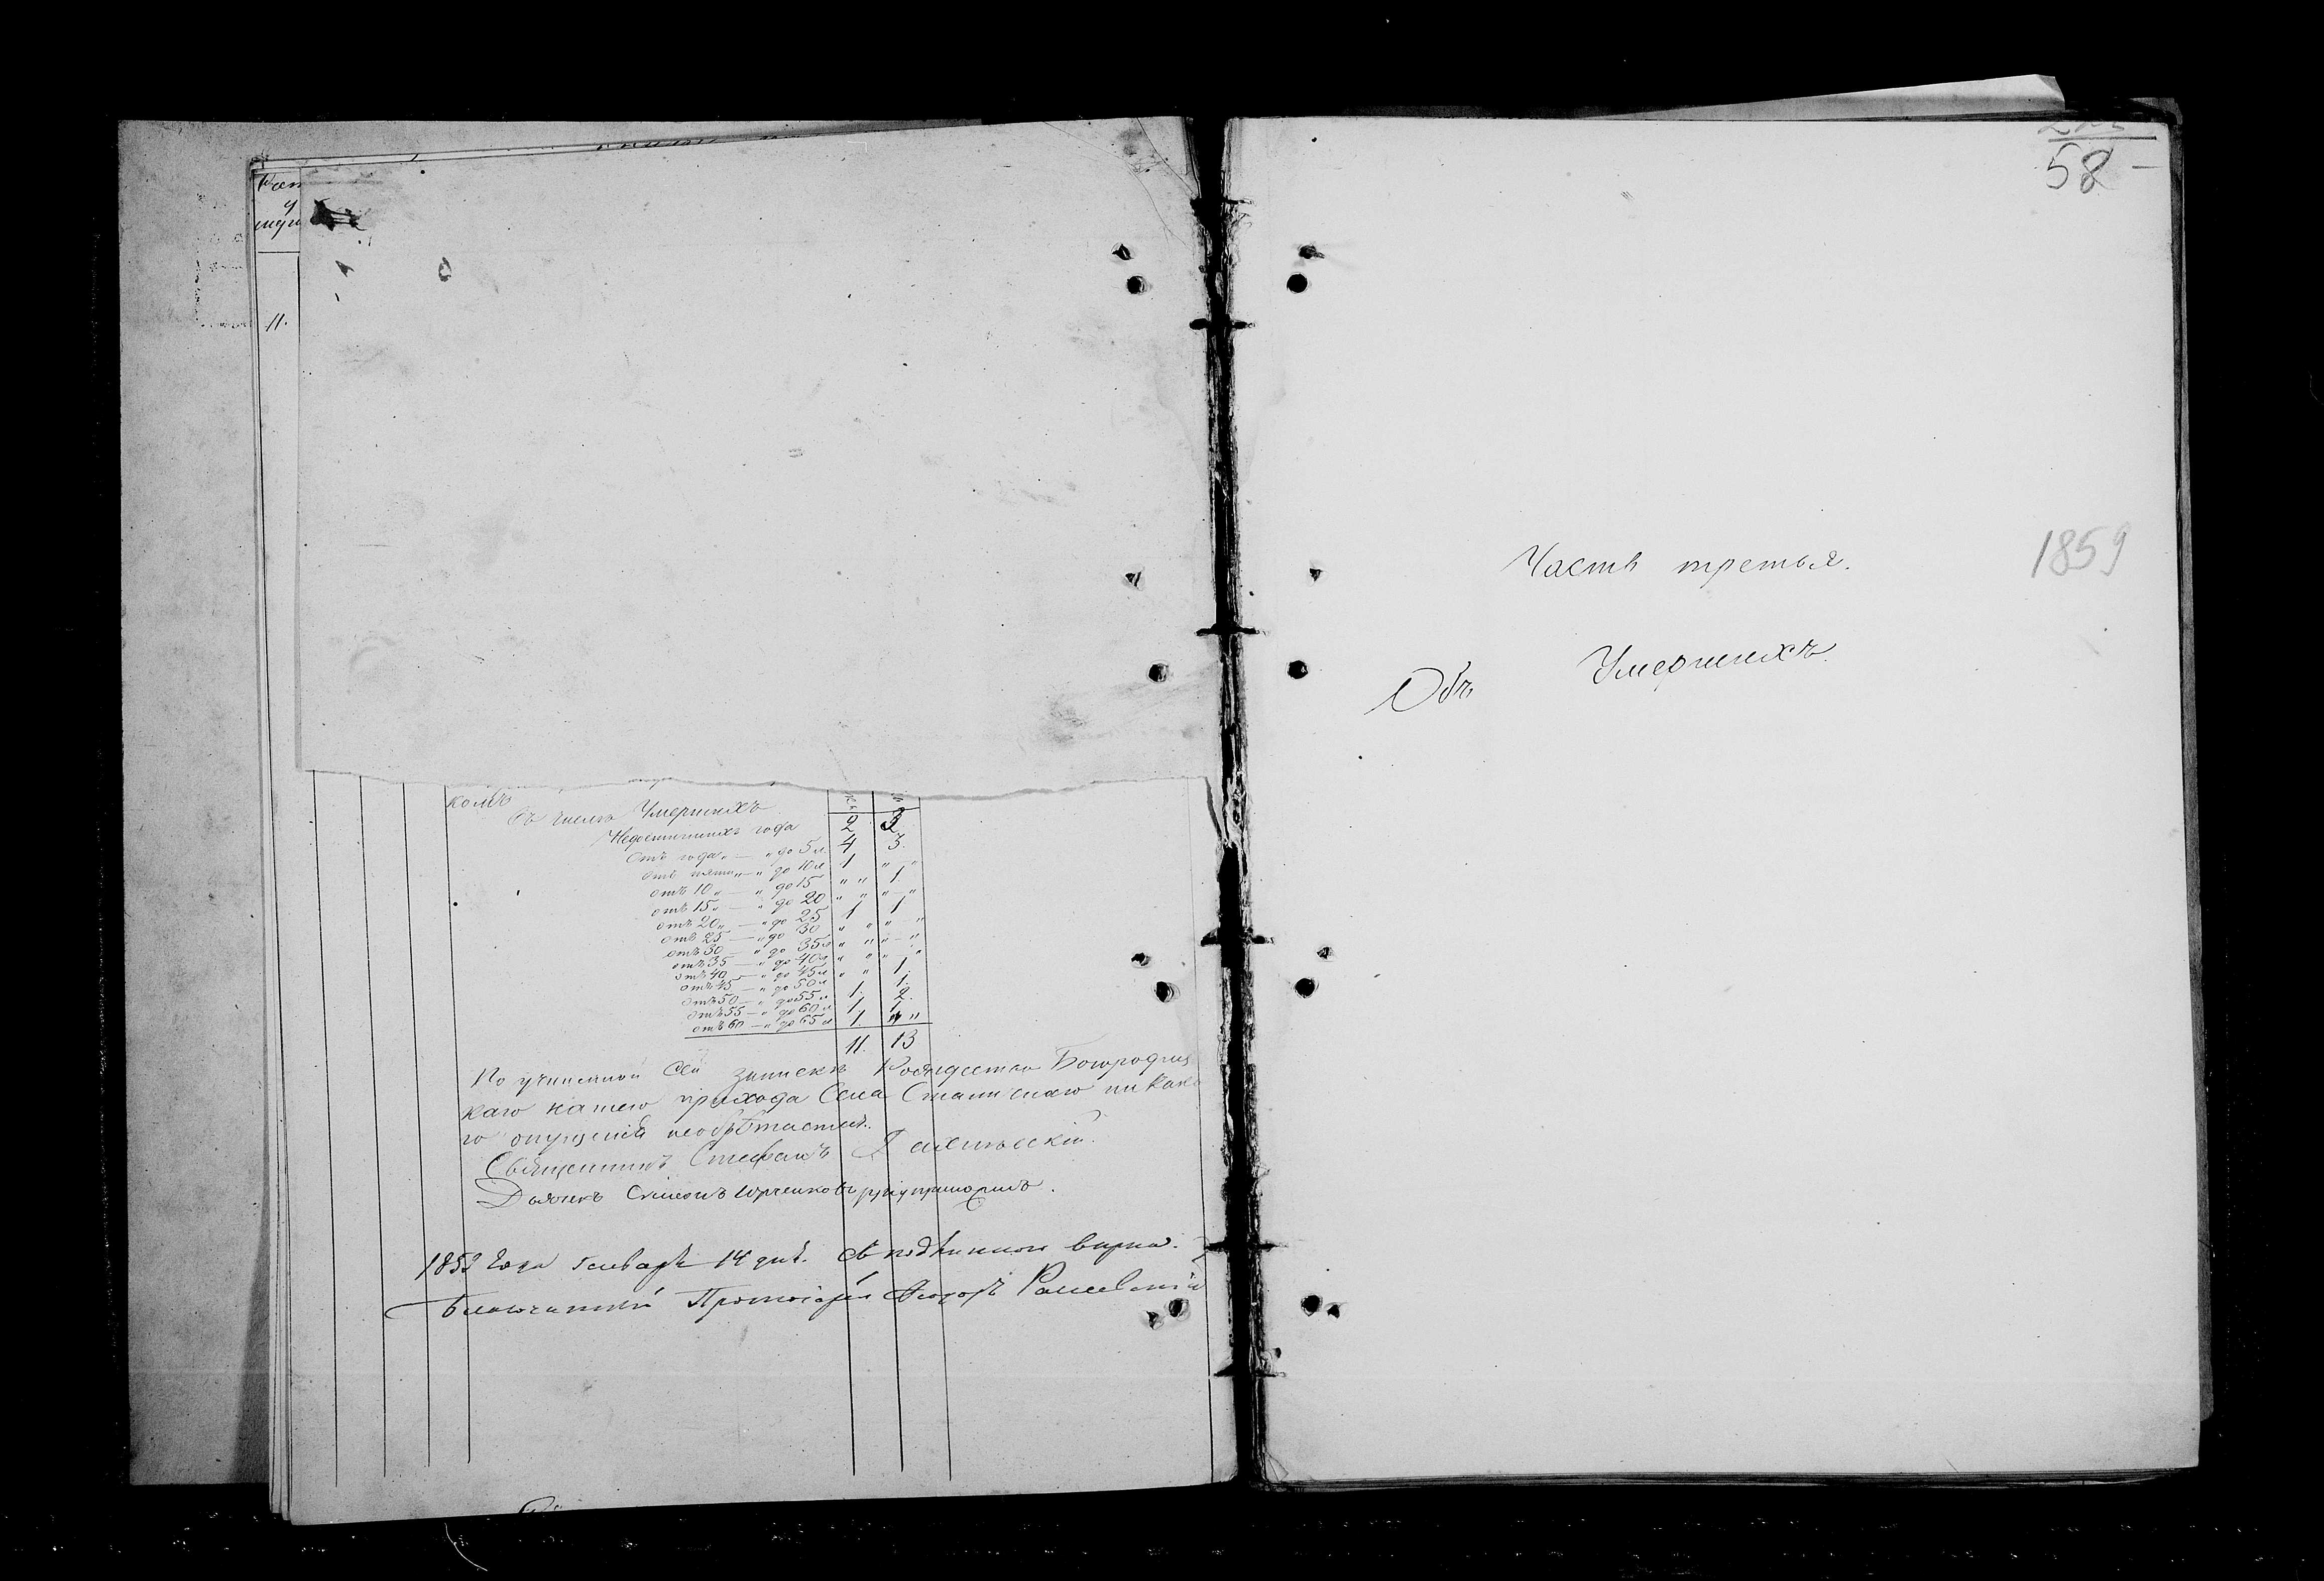 11.
въ числѣ Умершихъ
Недостигшихъ года 2 3
отъ года „ — „ до 5 л. 4 3.
отъ пяти „ — „ до 10 л 1 „ — „
отъ 10 „ — „ до 15 „ „ 1.
отъ 15 „ — „ до 20 „ „ „ — „
отъ 20 „ — „ до 25 1 1
отъ 25 — „ до 30 „ „ „ „
отъ 30 — „ до 35 л „ „ „ — „
отъ 35 — „ до 40 л „ „ „ „
отъ 40 — „ до 45 л „ „ 1.
отъ 45 — „ до 50 л 1.
отъ 50 — „ до 55 л 1. 2.
отъ 55 — „ до 60 л 1 1
отъ 60 — „ до 65 л 1. „ „
11. 13
По учиненной сей запискѣ Рождество Богородиц
каго нашего прихода Села никако
го опущенія необрѣтается.
Священникъ Стефанъ
Дьячекъ Симеонъ Юрченковъ руку приложилъ.
года Генваря 14 дня. Съ подлиннымъ вѣрна.
Благочинный Протоіерей Ѳеодоръ
58 —
Часть третья.
1859
Объ Умершихъ.